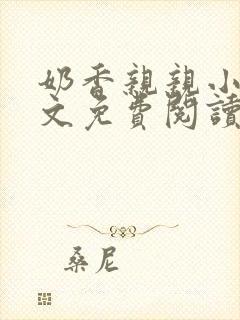 奶香親親小
文免費閱讀
桑尼